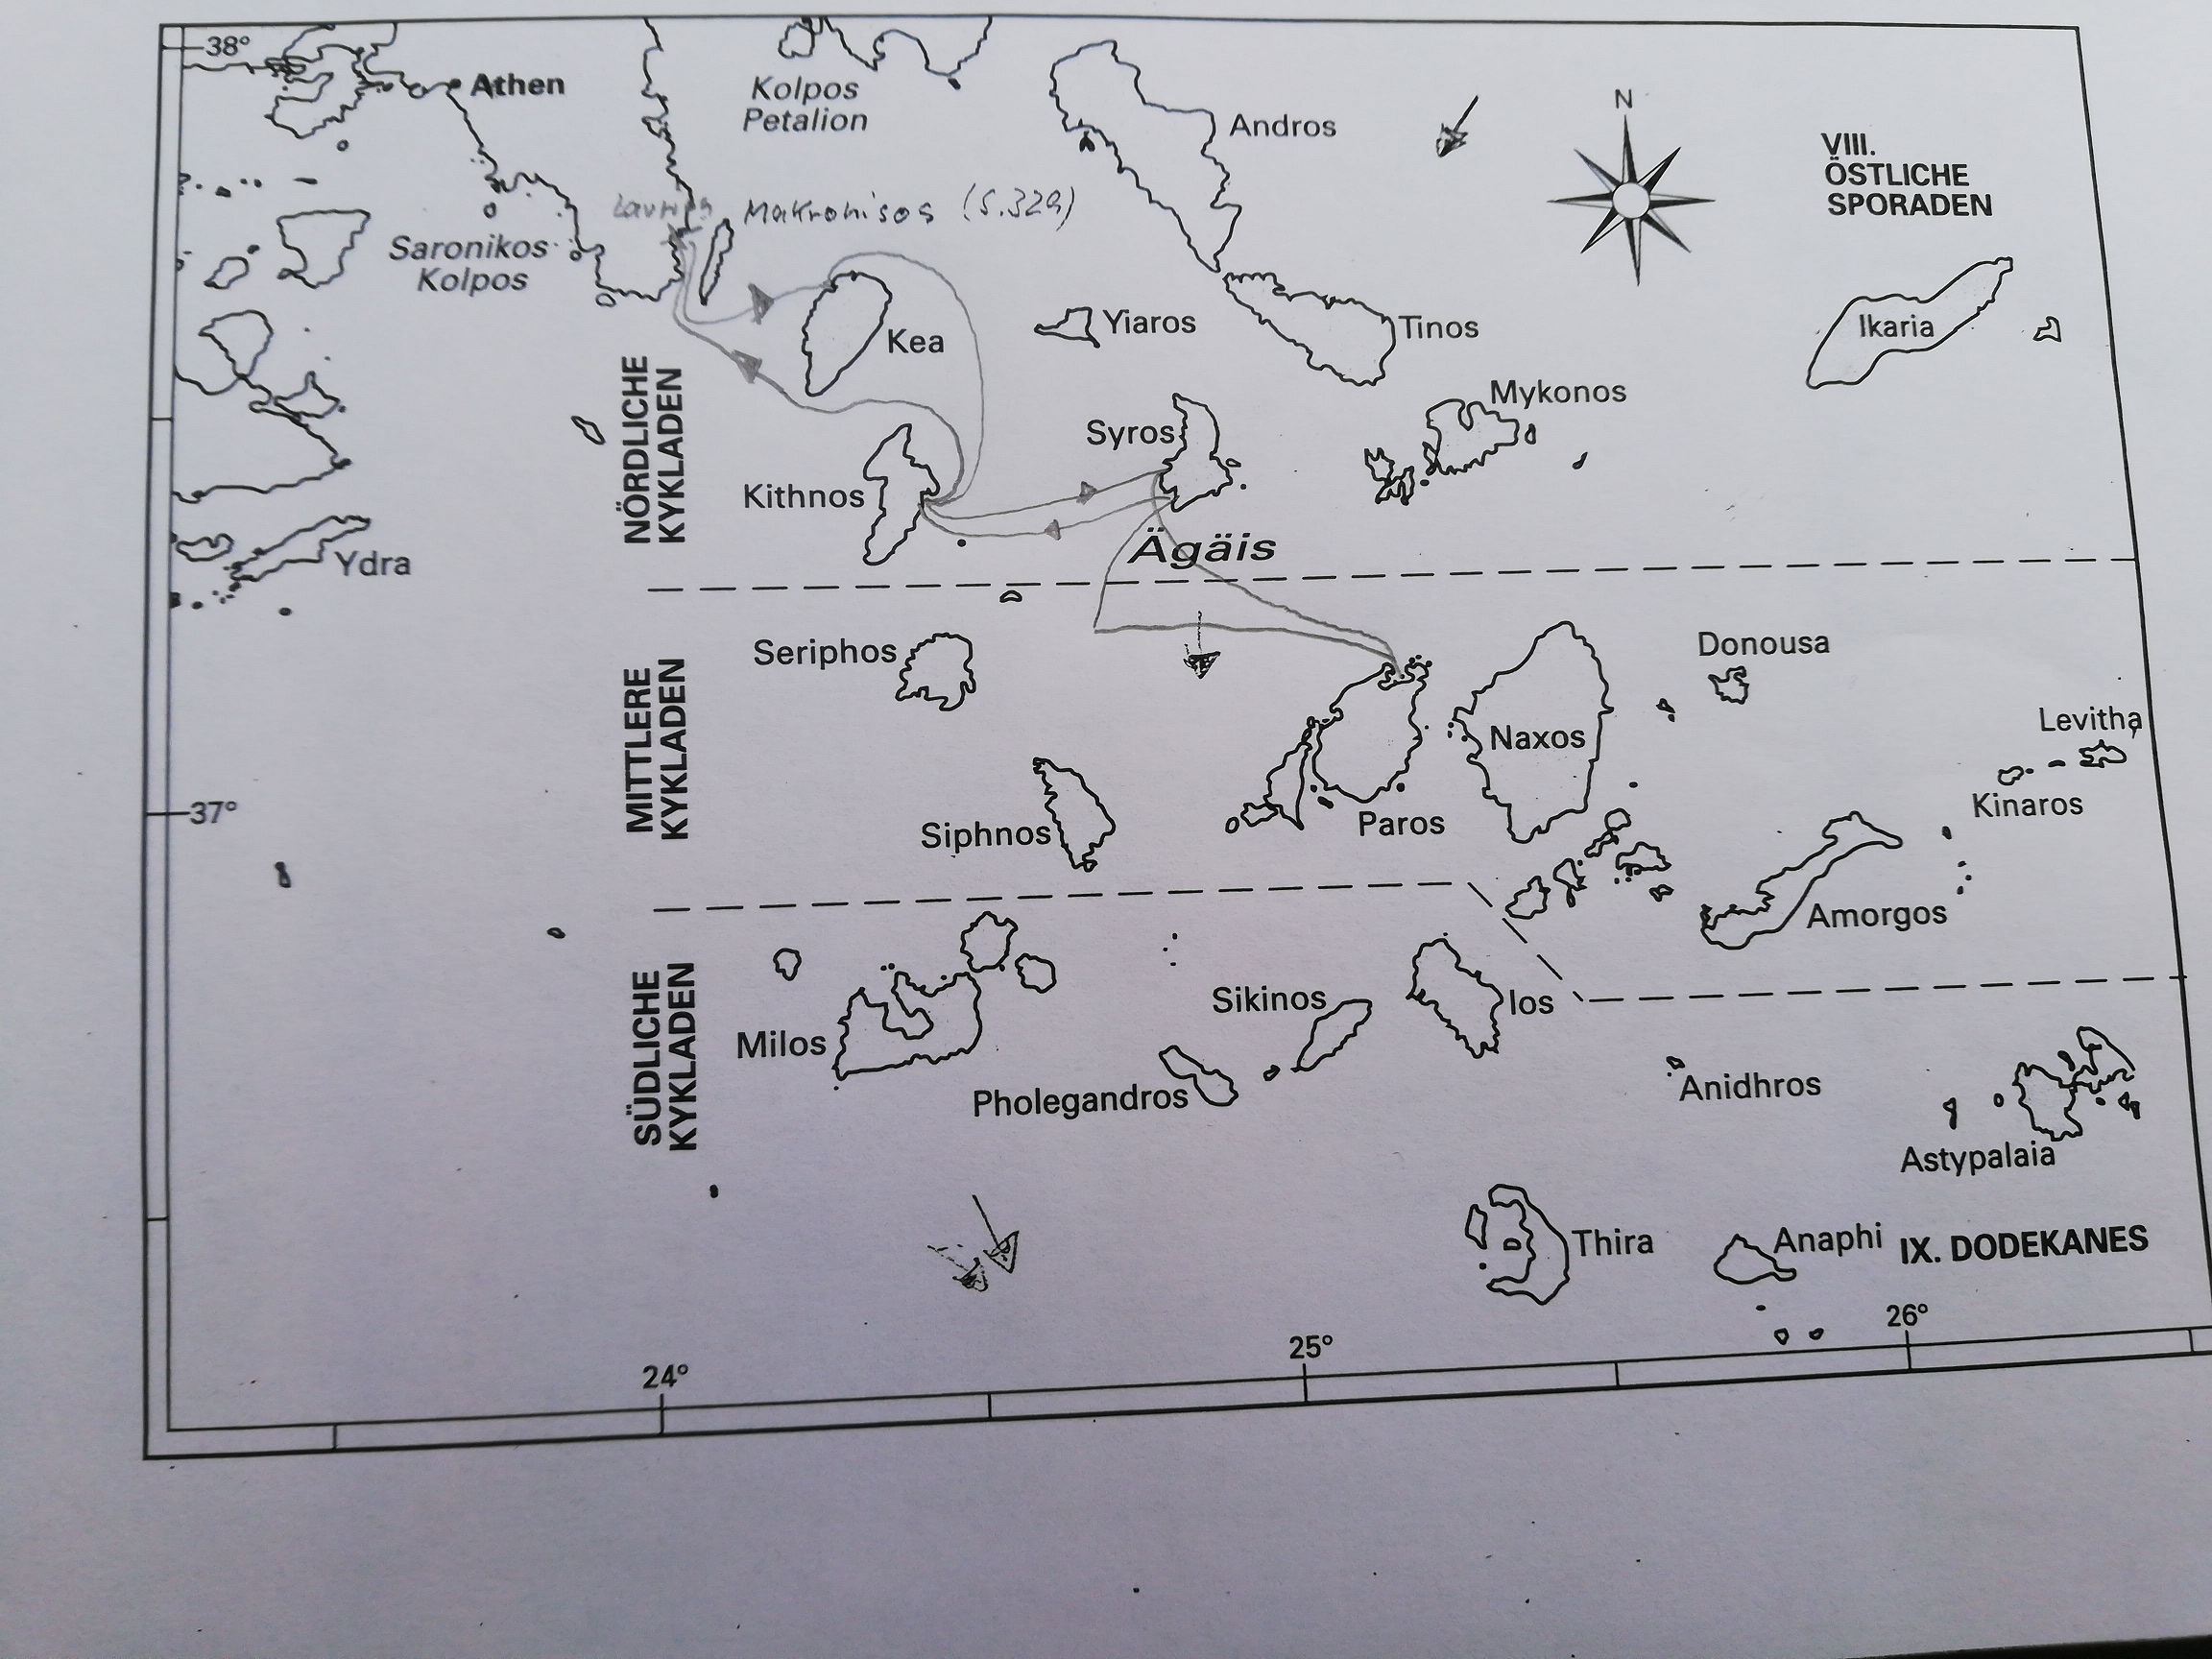 38°
Athen
Kolpos
Petalion
Andros
N
VIII.
ÖSTLICHE
SPORADEN
Makronisos (S.329)
Saronikos
Kolpos
Kea
Yiaros
Tinos
Ikaria
Mykonos
Syros
NÖRDLICHE
KYKLADEN
Kithnos
Ägäis
Ydra
Seriphos
Donousa
MITTLERE
KYKLADEN
Naxos
Levitha
37°
Siphnos
Paros
Kinaros
Amorgos
SÜDLICHE
KYKLADEN
Milos
Sikinos
Ios
Pholegandros
Anidhros
Astypalaia
Thira
Anaphi
IX. DODEKANES
24°
25°
26°